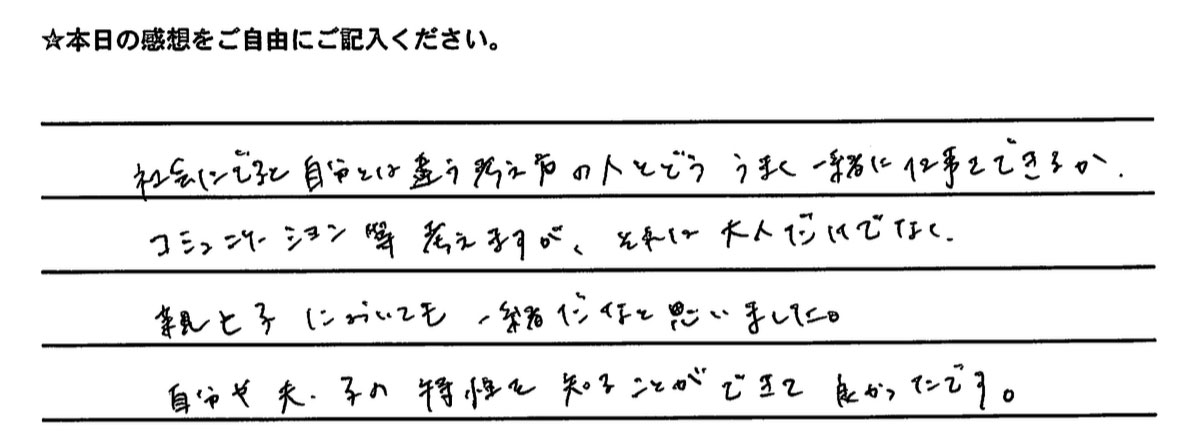 ☆本日の感想をご自由にご記入ください。
社会にでると自分とは違う考え方の人とどううまく一緒に仕事をできるか、
コミュニケーション等考えますが、それは大人だけでなく、
親と子においても一緒だなと思いました。
自分や夫、子の特性を知ることができて良かったです。